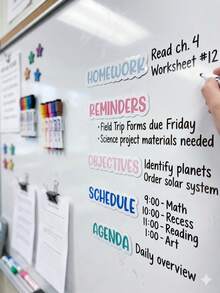 HOMEWORK
Read ch. 4
Worksheet #12
REMINDERS
• Field Trip Forms due Friday
• Science project materials needed
OBJECTIVES
Identify planets
Order solar system
SCHEDULE
9:00 - Math
10:00 - Recess
11:00 - Reading
1:00 - Art
AGENDA
Daily overview